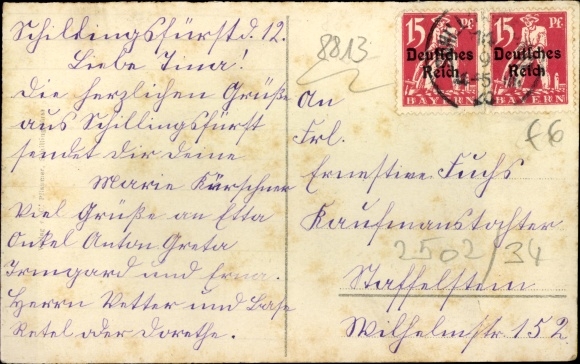 Schillingsfürst d. 12.
Liebe Tina!
Die herzlichen Grüße
aus Schillingsfürst
sendet dir deine
Marie Kürschner
Viel Grüße an Etta
Onkel Anton Greta
Irmgard und Erna.
Herrn Vetter und Base
Retel oder Dorethe.
8813
15 PF.
Deutsches
Reich
BAYERN
15 PF.
Deutsches
Reich
BAYERN
An
Frl.
Ernestine Fuchs
Kaufmanstochter
Staffelstein
Wilhelmstr. 152
f6
2502/34